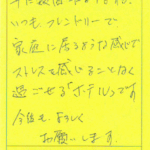 いつもフレンドリーで
家庭に居るような感じで
ストレスを感じることなく
過ごせる「ホテル」です
今後も よろしく
お願いします